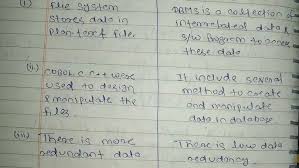 (i) File System
stores data in
plan text file.
DBMS is a collection of
interrelated data &
s/w program to access
these data
(ii) COBOL C C++ were
used to design
& manipulate the
files.
It include several
method to create
and manipulate
data in database
(iii) There is more
redundant data
There is low data
redundancy